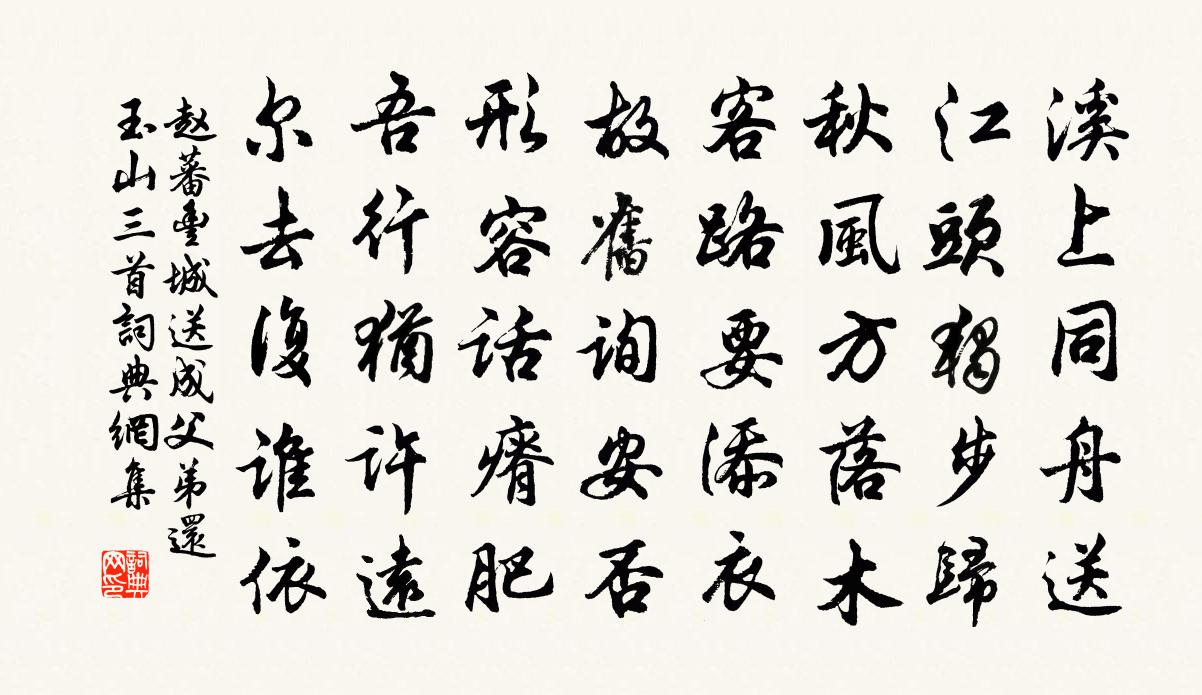 溪上同舟送
江頭獨步歸
秋風方落木
客路要添衣
故舊詢安否
形容話瘠肥
吾行猶許遠
尔去復誰依
赵蕃豊城送成父弟還
玉山三首詞典網集
詞典網印